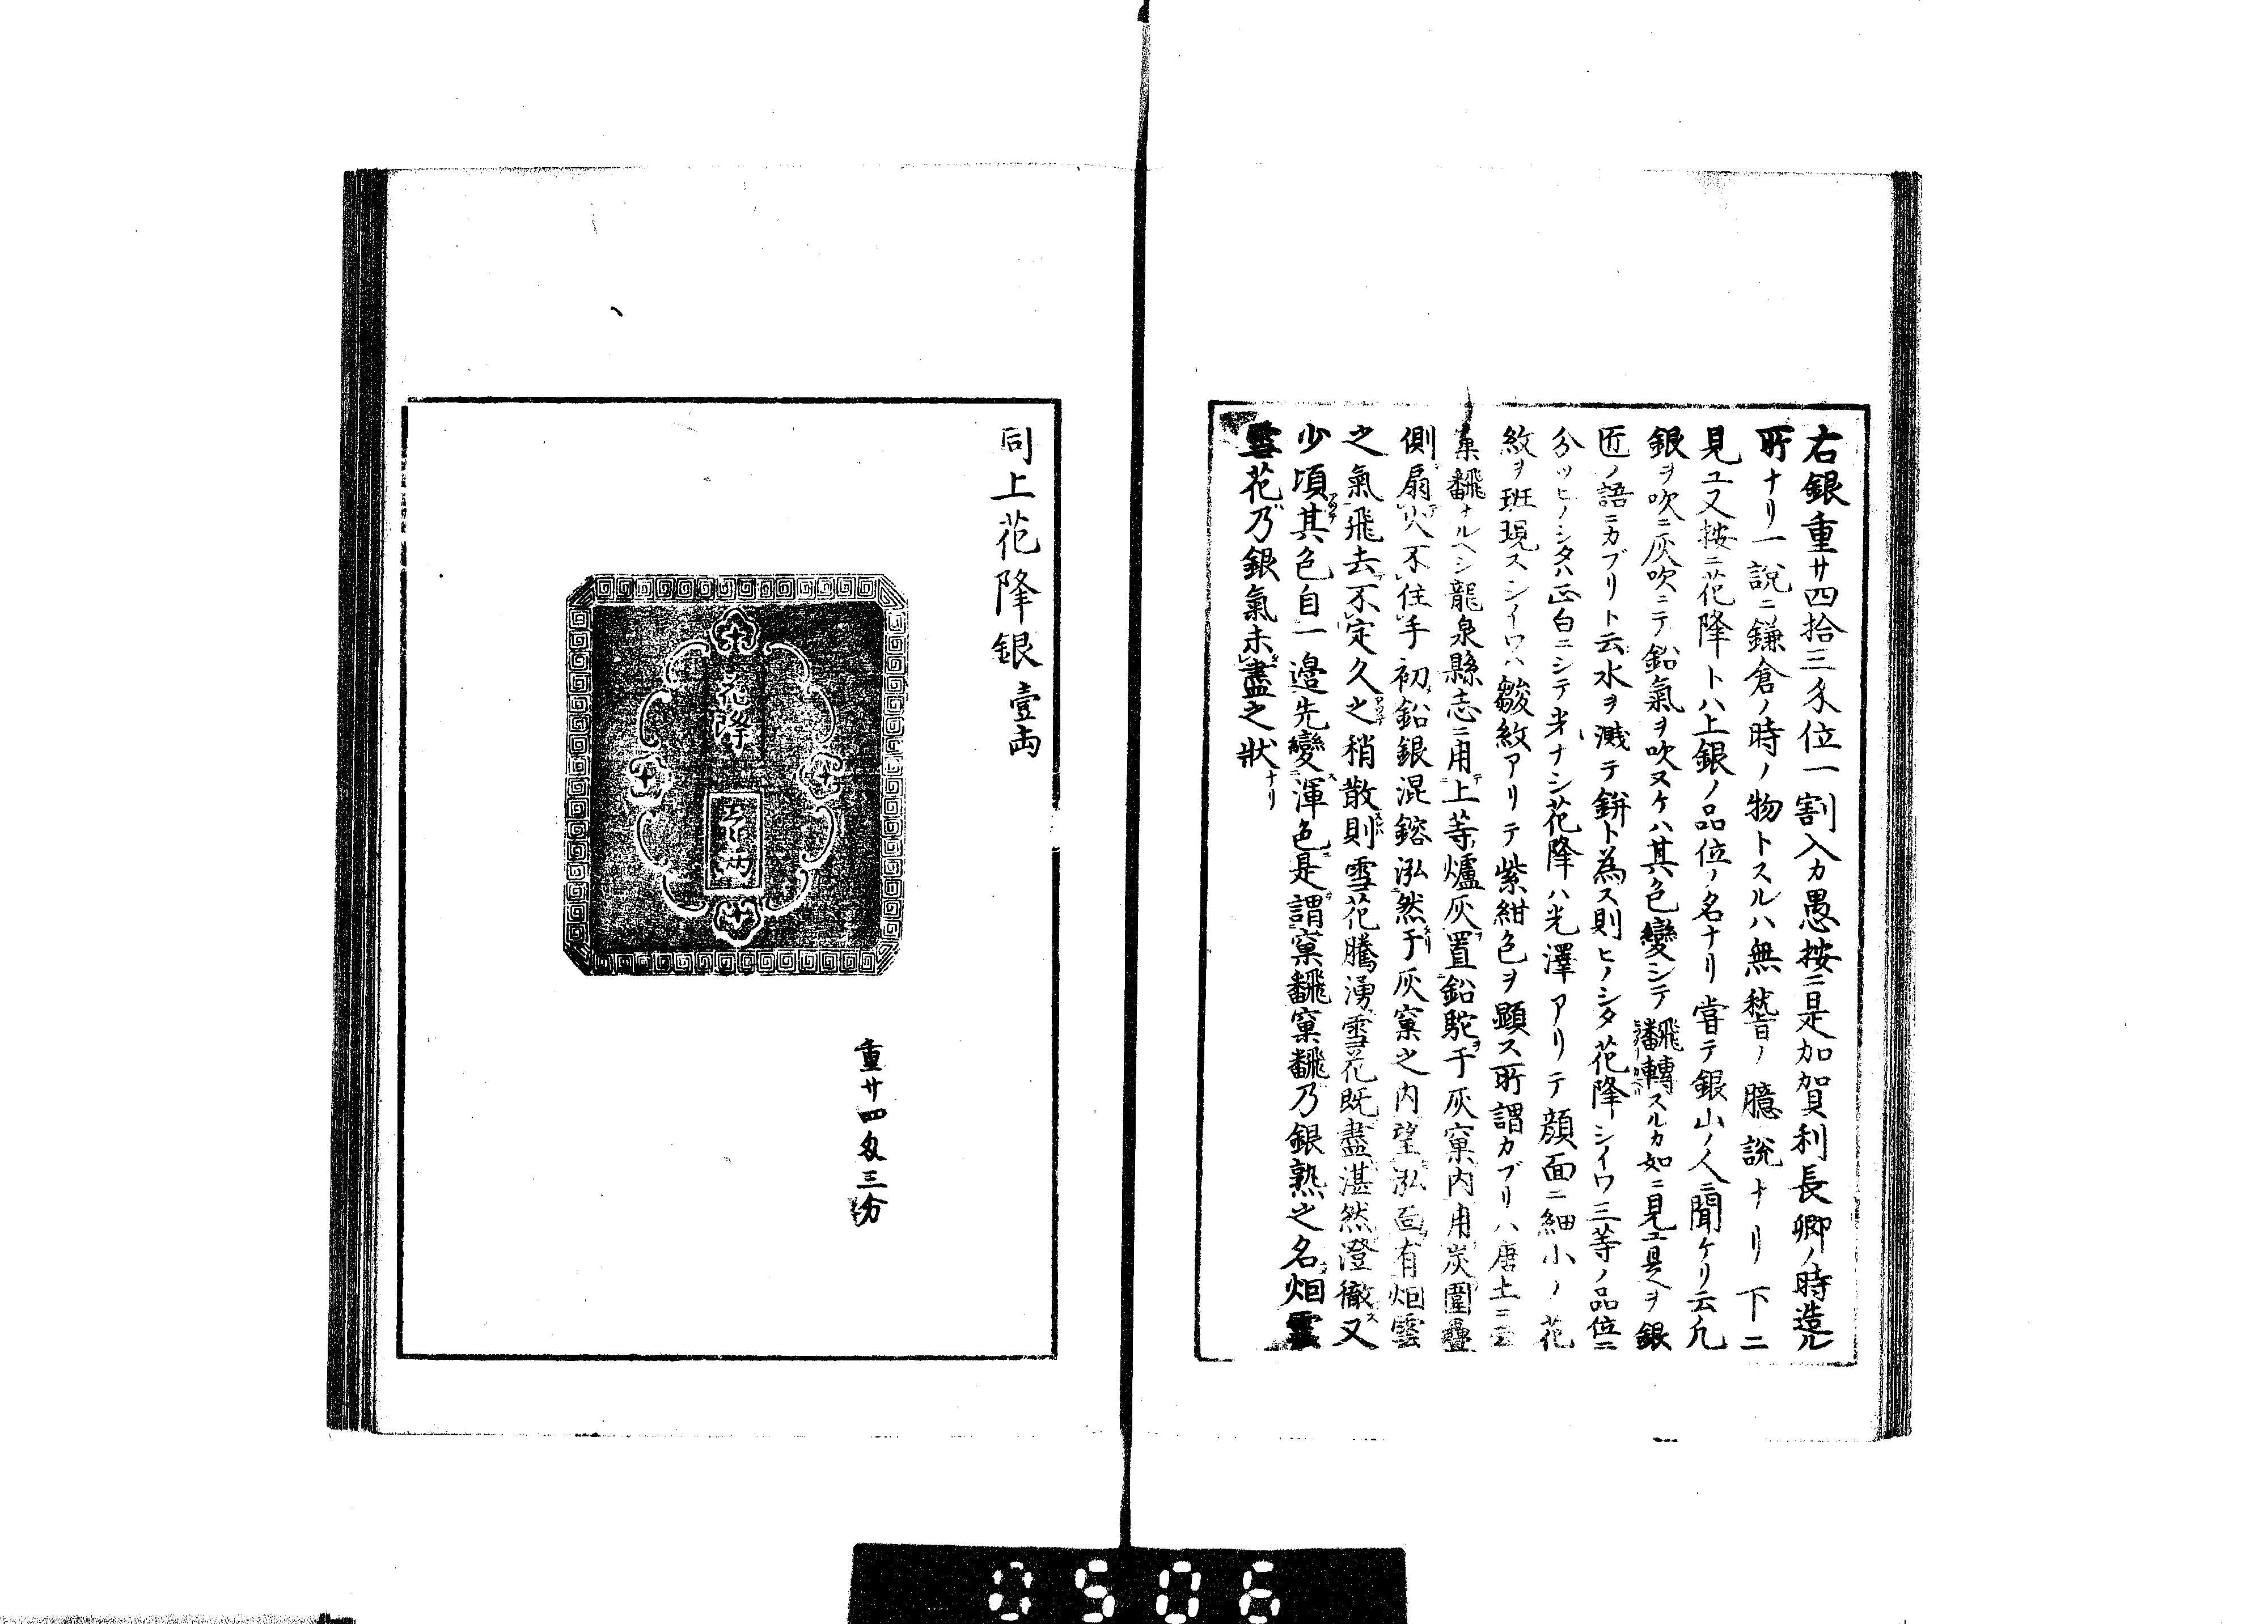 右銀重廿四拾三匁位一割入カ愚按ニ是加賀利長卿ノ時造ル
所ナリ一說ニ鎌倉ノ時ノ物トスルハ無稽ノ臆說ナリ下ニ
見ユ又按ニ花降トハ上銀ノ品位ノ名ナリ嘗テ銀山ノ人ニ聞ケリ云凡
銀ヲ吹ニ灰吹ニテ鉛氣ヲ吹ヌケハ其色變シテ飜轉スルカ如ニ見エ是ヲ銀
匠ノ語ニカブリト云水ヲ濺テ餅ト為ス則ヒノシタ花降シイワ三等ノ品位ニ
分ツヒノシタハ正白ニシテ光ナシ花降ハ光澤アリテ顏面ニ細小ノ花
紋ヲ班現スシイワハ皺紋アリテ紫紺色ヲ顯ス所謂カブリハ唐土ニ云
窠飜ナルヘシ龍泉縣志ニ用上等爐灰置鉛駝于灰窠内用炭圍疊
側扇火不住手初鉛銀混鎔泓然于灰窠之内望泓面有烟雲
之氣飛去不定久之稍散則雪花騰湧雪花既盡湛然澄徹又
少頃其色自一邉先變渾色是謂窠飜窠飜乃銀熟之名烟雲
雪花乃銀氣未盡之狀ナリ
同上花降銀壹兩
花降
壹兩
重廿四匁三分
0506